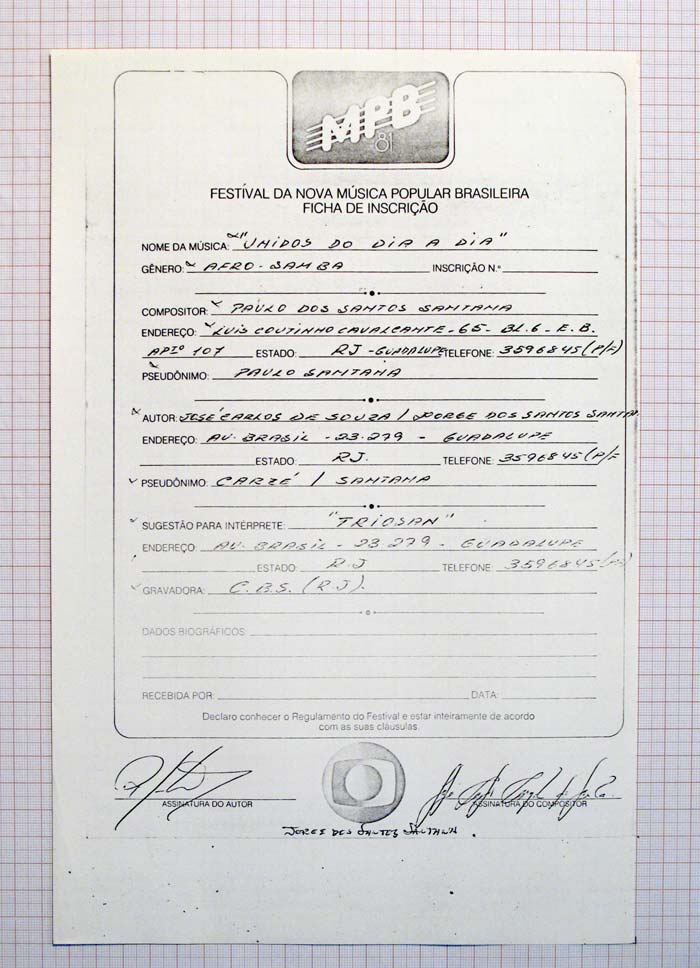 MPB
81
FESTIVAL DA NOVA MÚSICA POPULAR BRASILEIRA
FICHA DE INSCRIÇÃO
NOME DA MÚSICA: "UNIDOS DO DIA A DIA"
GÊNERO: AFRO-SAMBA INSCRIÇÃO N.º
COMPOSITOR: PAULO DOS SANTOS SANTANA
ENDEREÇO: LUIS COUTINHO CAVALCANTE-65-BL.6-E.B.
APTº 107 ESTADO: RJ-GUADALUPE TELEFONE: 3596845 (P/F)
PSEUDÔNIMO: PAULO SANTANA
AUTOR: JOSÉ CARLOS DE SOUZA / JORGE DOS SANTOS SANTANA
ENDEREÇO: AV. BRASIL - 23.279 - GUADALUPE
ESTADO: RJ. TELEFONE: 3596845 (P/F
PSEUDÔNIMO: CARZÉ / SANTANA
SUGESTÃO PARA INTÉRPRETE: "TRIOSAN"
ENDEREÇO: AV. BRASIL - 23 279 - GUADALUPE
ESTADO: R.J TELEFONE: 3596845
GRAVADORA: C.B.S. (R.J).
DADOS BIOGRÁFICOS:
RECEBIDA POR: DATA:
Declaro conhecer o Regulamento do Festival e estar inteiramente de acordo
com as suas cláusulas.
ASSINATURA DO AUTOR ASSINATURA DO COMPOSITOR
JORGE DOS SANTOS SANTANA